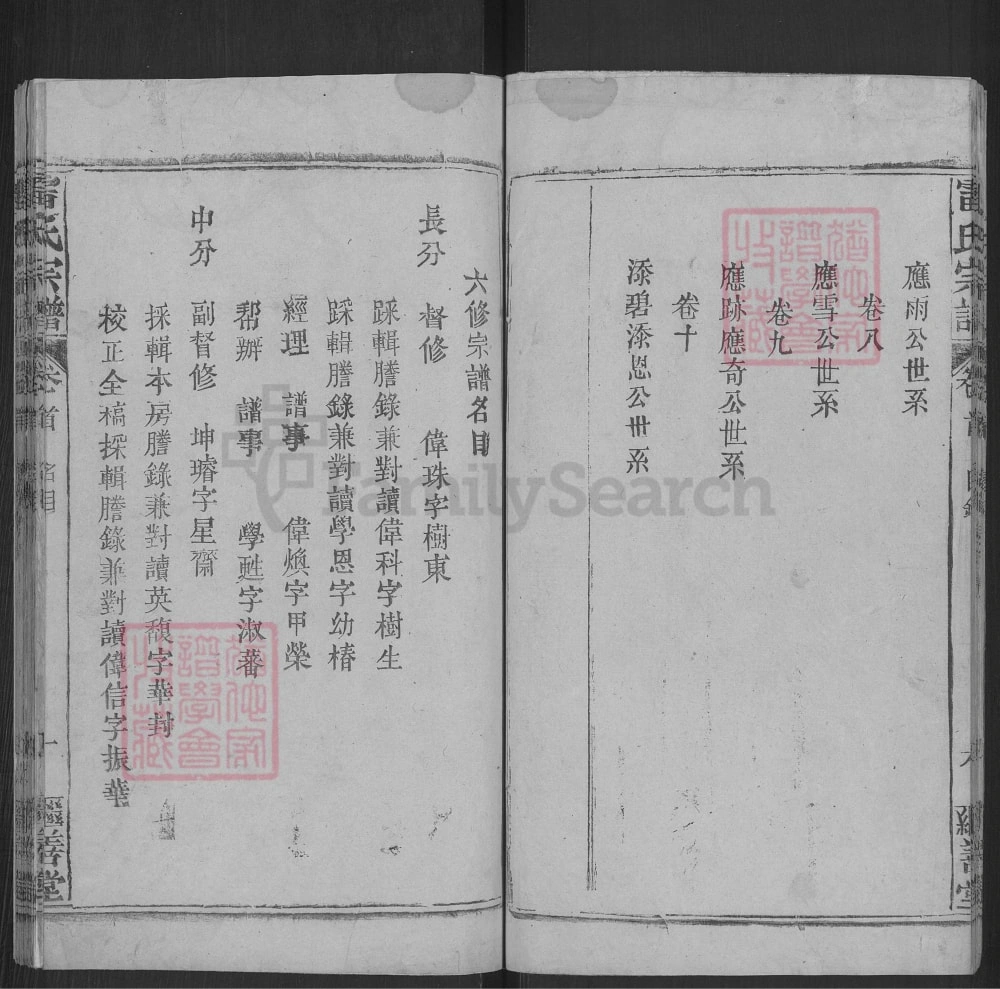 雷氏宗譜 卷首 目錄 六 繩善堂
應雨公世系
卷八
應雪公世系
卷九
應跡應奇公世系
卷十
添碧添恩公世系
六修宗譜名目
長分 督修 偉珠字樹東
踩輯謄錄兼對讀偉科字樹生
踩輯謄錄兼對讀學恩字幼椿
經理 譜事 偉煥字甲榮
帮辦 譜事 學甦字淑蕃
中分 副督修 坤璿字星齋
採輯本房謄錄兼對讀英馥字華封
校正全稿採輯謄錄兼對讀偉信字振華
雷氏宗譜 卷首 名目 一 繩善堂
FamilySearch